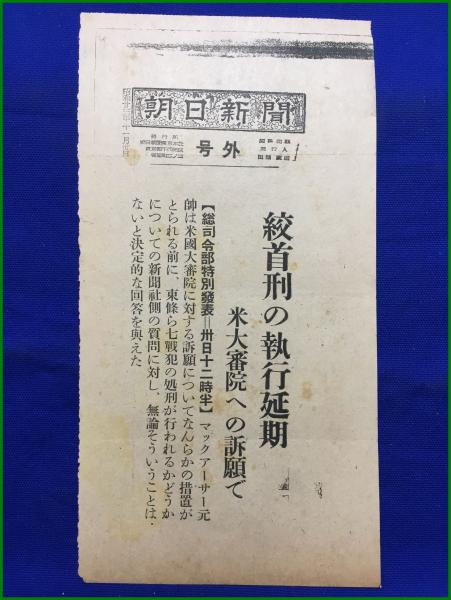 朝日新聞
号外
絞首刑の執行延期
米大審院への訴願で
【総司令部特別發表＝卅日十二時半】マックアーサー元
帥は米國大審院に対する訴願についてなんらかの措置が
とられる前に、東條ら七戦犯の処刑が行われるかどうか
についての新聞社側の質問に対し、無論そういうことは
ないと決定的な回答を與えた